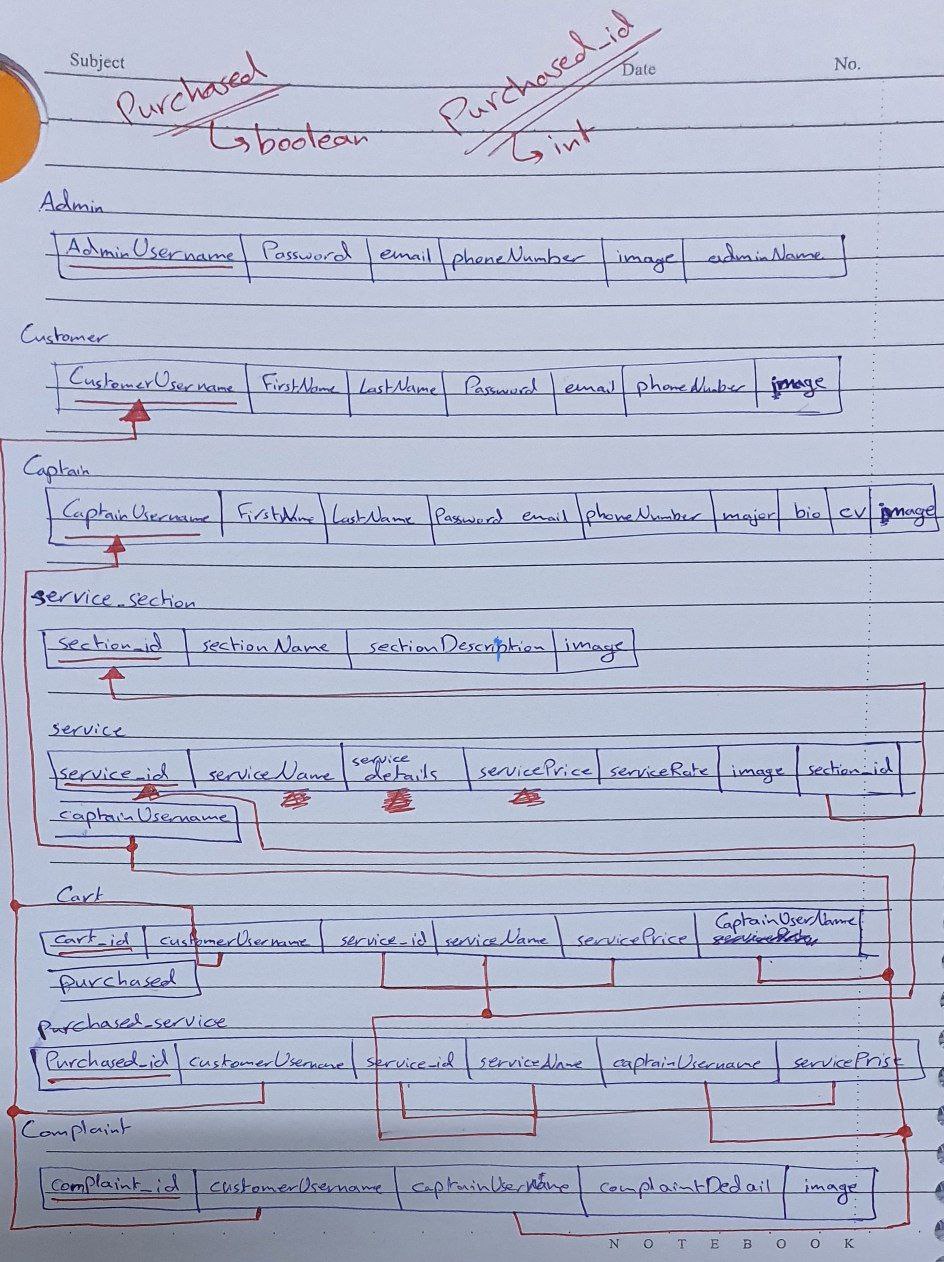 Subject Date No.
Purchased Purchased_id
boolean int
Admin
AdminUsername Password email phoneNumber image adminName
Customer
CustomerUsername FirstName LastName Password email phoneNumber image
Captain
CaptainUsername FirstName LastName Password email phoneNumber major bio cv image
service_section
section_id sectionName sectionDescription image
service
service_id serviceName service details servicePrice serviceRate image section_id
captainUsername
Cart
cart_id customerUsername service_id serviceName servicePrice CaptainUserName
purchased
purchased_service
Purchased_id customerUsername service_id serviceName captainUsername servicePrise
Complaint
complaint_id customerUsername captainUsername complaintDedail image
NOTEBOOK